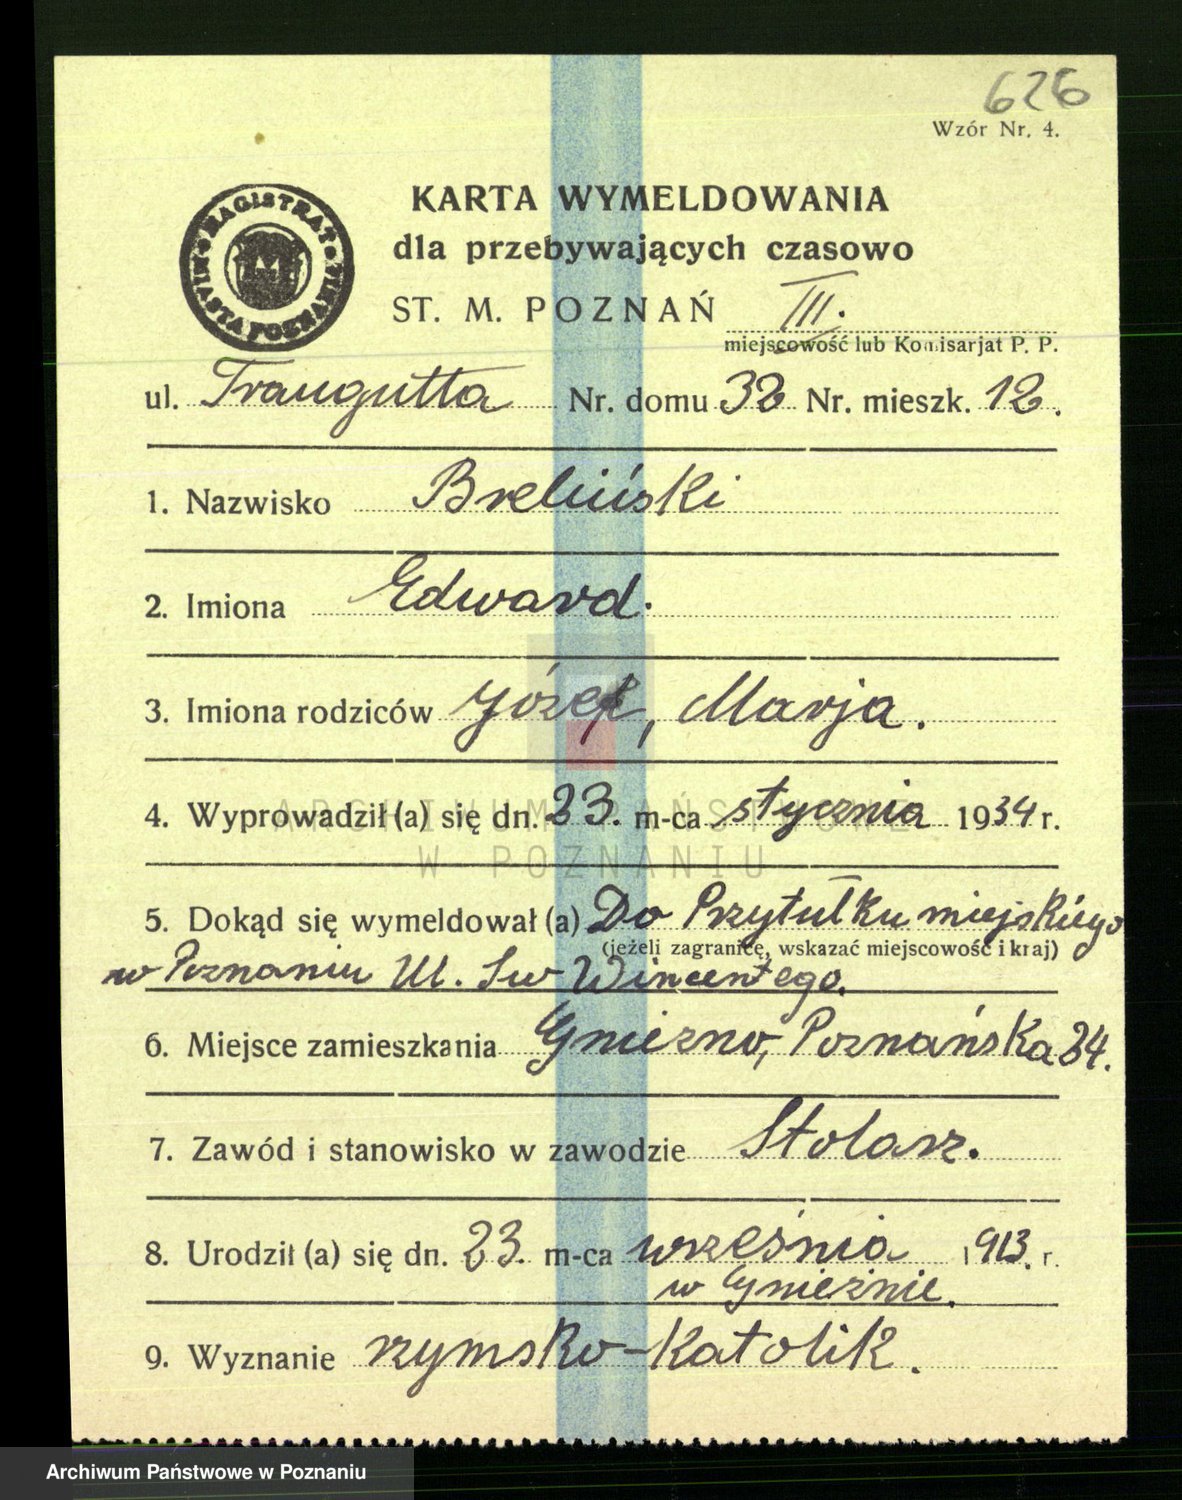 626
Wzór Nr. 4.
MAGISTRAT MIASTA POZNANIA
KARTA WYMELDOWANIA
dla przebywających czasowo
ST. M. POZNAŃ III.
miejscowość lub Komisarjat P. P.
ul. Traugutta Nr. domu 32 Nr. mieszk. 12.
1. Nazwisko Breliński
2. Imiona Edward.
3. Imiona rodziców Józef, Marja.
4. Wyprowadził (a) się dn. 23. m-ca stycznia 1934 r.
ARCHIWUM PAŃSTWOWE
W POZNANIU
5. Dokąd się wymeldował (a) Do Przytułku miejskiego
(jeżeli zagranicę, wskazać miejscowość i kraj)
w Poznaniu Ul. Św Wincentego.
6. Miejsce zamieszkania Gniezno, Poznańska 24.
7. Zawód i stanowisko w zawodzie Stolarz.
8. Urodził (a) się dn. 23. m-ca września 1913. r.
w Gnieźnie.
9. Wyznanie rzymsko-katolik.
Archiwum Państwowe w Poznaniu